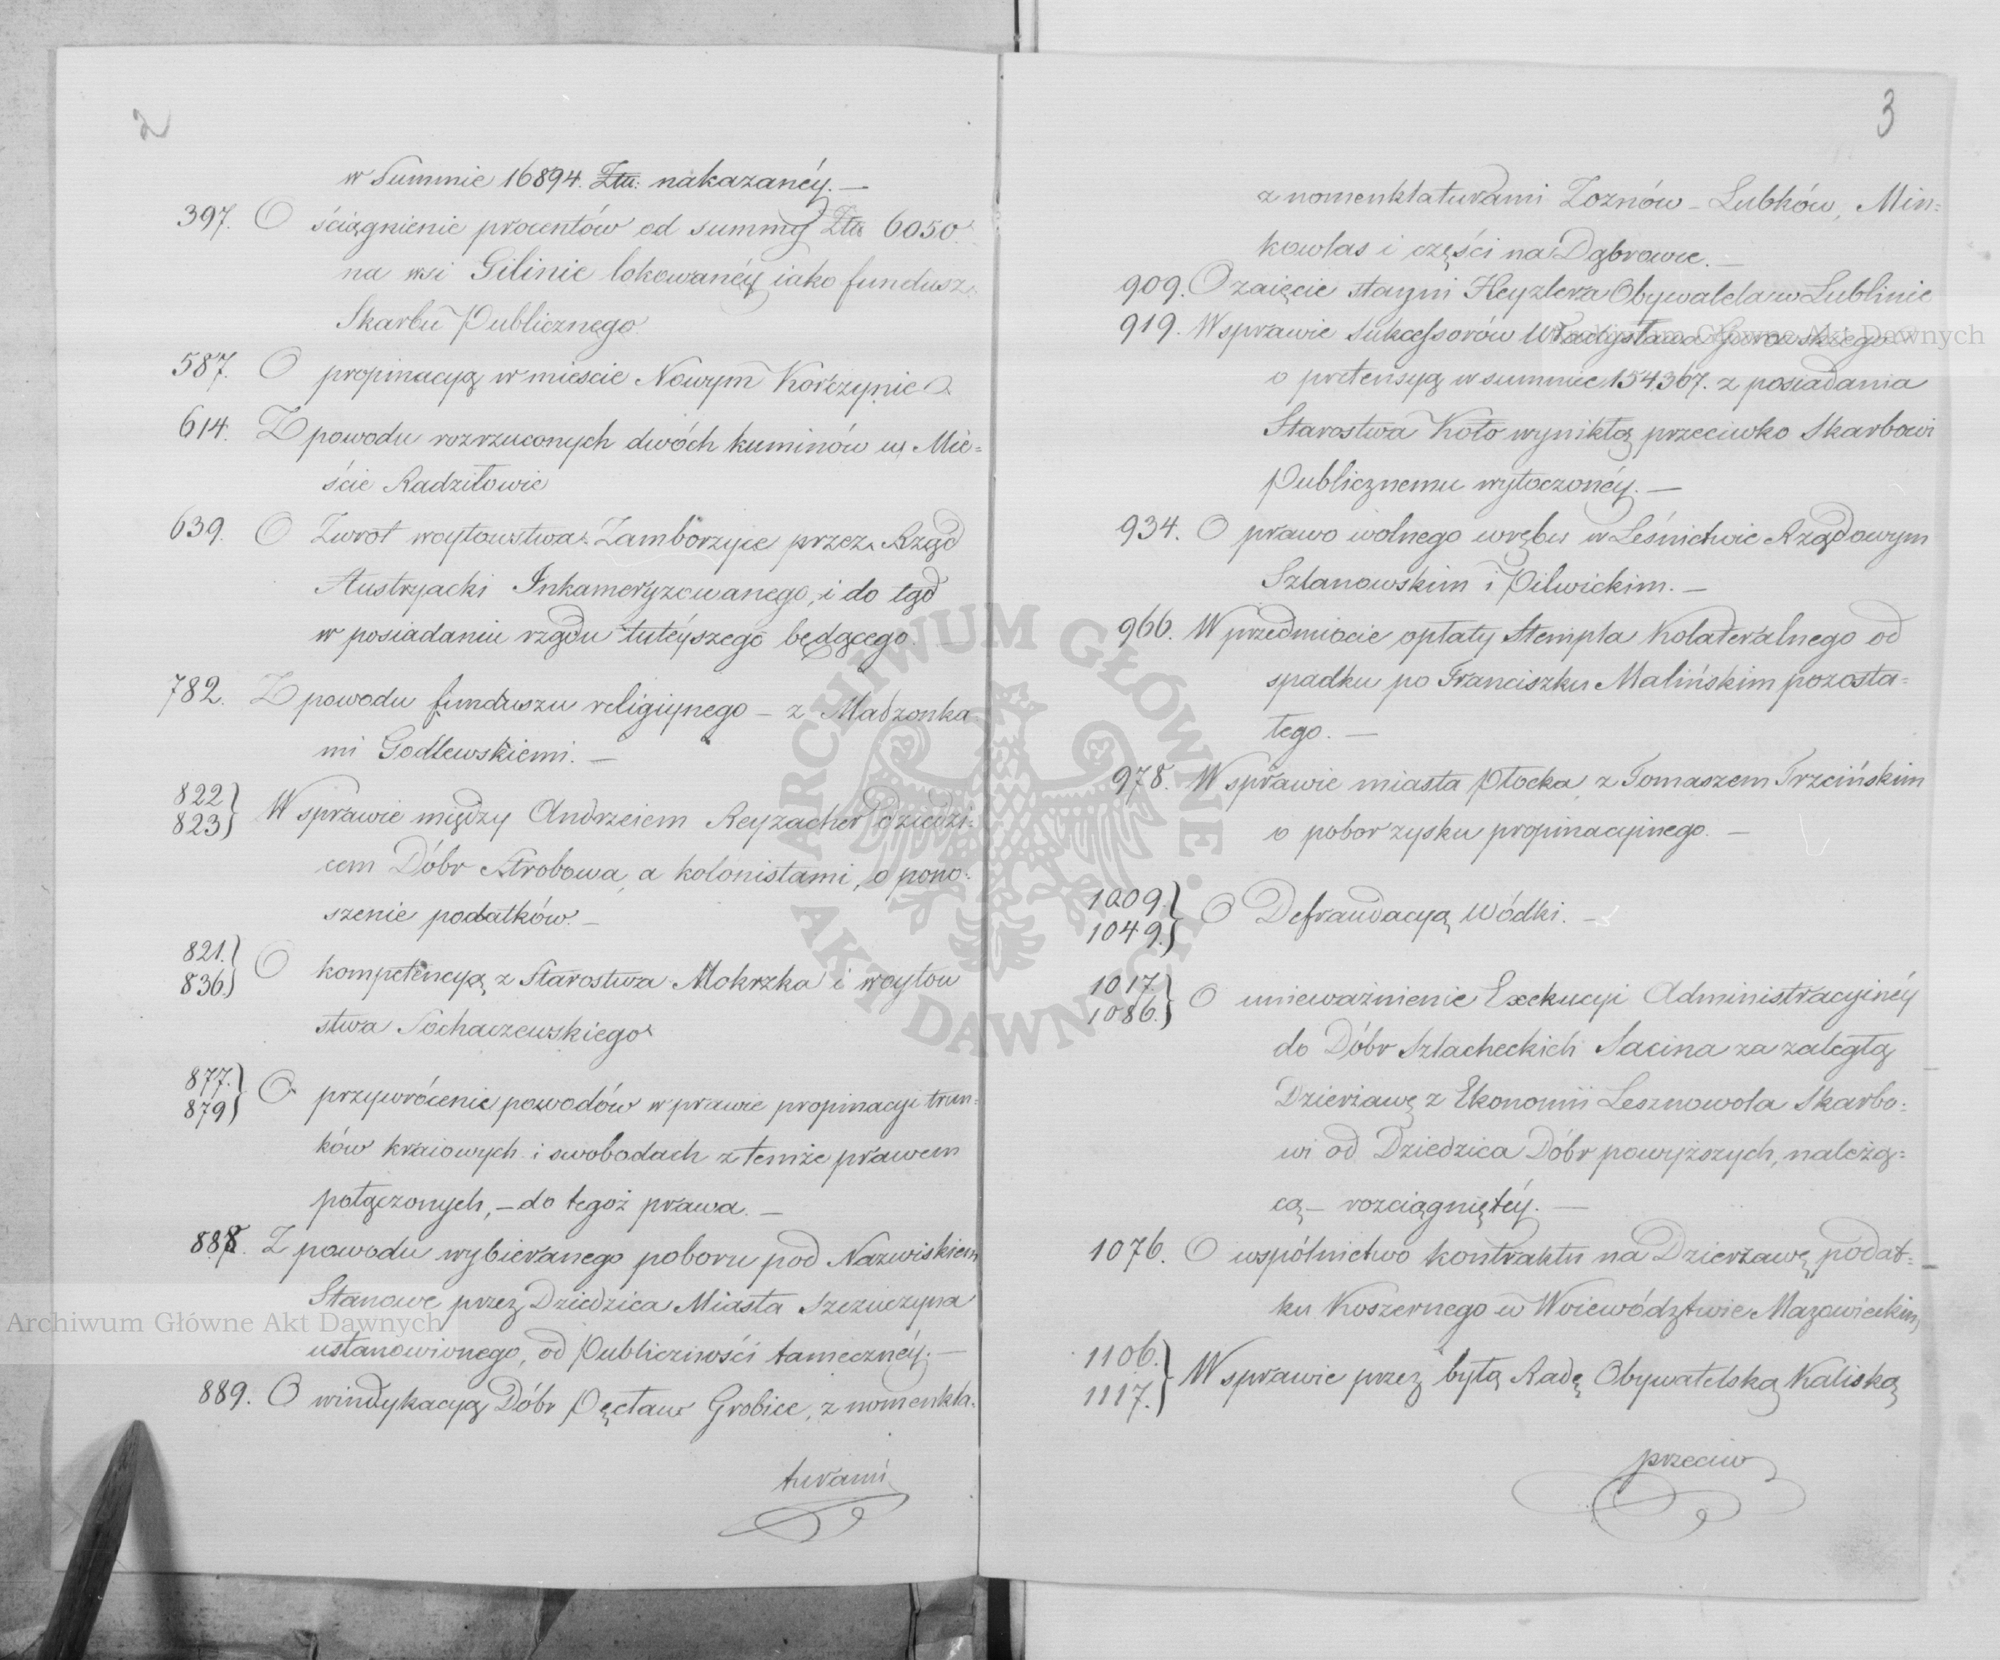 2
w Summie 16894. Złtu: nakazanéy. —
397. O ściągnienie procentów od summy Złtu 6050
na wsi Gilinie lokowanéy iako fundusz
Skarbu Publicznego
587. O propinacyą w mieście Nowym Korczynie
614. Z powodu rozrzuconych dwóch kuminów w Mie=
ście Radziłowie
639. O Zwrot woytowstwa Zamborzyce przez Rząd
Austryacki Inkameryzowanego, i do tąd
w posiadaniu rządu tuteyszego będącego.
782. Z powodu funduszu religiynego — z Madzonka
mi Godlewskiemi. —
822
823 } W sprawie między Andrzeiem Reyzacher dziedzi=
cem Dóbr Strobowa, a kolonistami, o pono=
szenie podatków. —
821.
836. } O kompetencyą z Starostwa Mokrzka i woytow
stwa Sochaczewskiego
877.
879 } O przywrócenie powodów w prawie propinacyi trun=
ków kraiowych i swobodach z temże prawem
połączonych, — do tegoż prawa. —
888. Z powodu wybieranego poboru pod Nazwiskiem
Stanowe przez Dziedzica Miasta Szczuczyna
ustanowionego, od Publiczności tameczney. —
889. O windykacyą Dóbr Pęcław Grobice, z nomenkla=
turami
3
z nomenklaturami Zoznów — Lubków, Min=
kowlas i części na Dąbrowie. —
909. O zaięcie stayni Heyzlera Obywatela w Lublinie
919. W sprawie Sukcessorów Władysława Gurowskiego
o pretensyą w summie 154367. z posiadania
Starostwa Koło wynikłą przeciwko Skarbowi
Publicznemu wytoczonéy. —
934. O prawo wolnego wrębu w Leśnictwie Rządowym
Szlanowskim i Pilwickim. —
966. W przedmiocie opłaty Stempla Kolateralnego od
spadku po Franciszku Malińskim pozosta=
łego. —
978. W sprawie miasta Płocka z Tomaszem Trzcińskim
o pobor zysku propinacyinego. —
1009.
1049. } O Defraudacyą Wódki. —
1017.
1086. } O unieważnienie Exekucyi Administracyinéy
do Dóbr Szlacheckich Sacina za zaległą
Dzierżawę z Ekonomii Lesznowola Skarbo=
wi od Dziedzica Dóbr powyższych, należą=
cą — rozciągniętéy. —
1076. O wspólnictwo kontraktu na Dzierżawę podat=
ku Koszernego w Woiewództwie Mazowieckim
1106.
1117. } W sprawie przez byłą Radę Obywatelską Kaliską
przeciw
ARCHIWUM GŁÓWNE AKT DAWNYCH
Archiwum Główne Akt Dawnych
Archiwum Główne Akt Dawnych